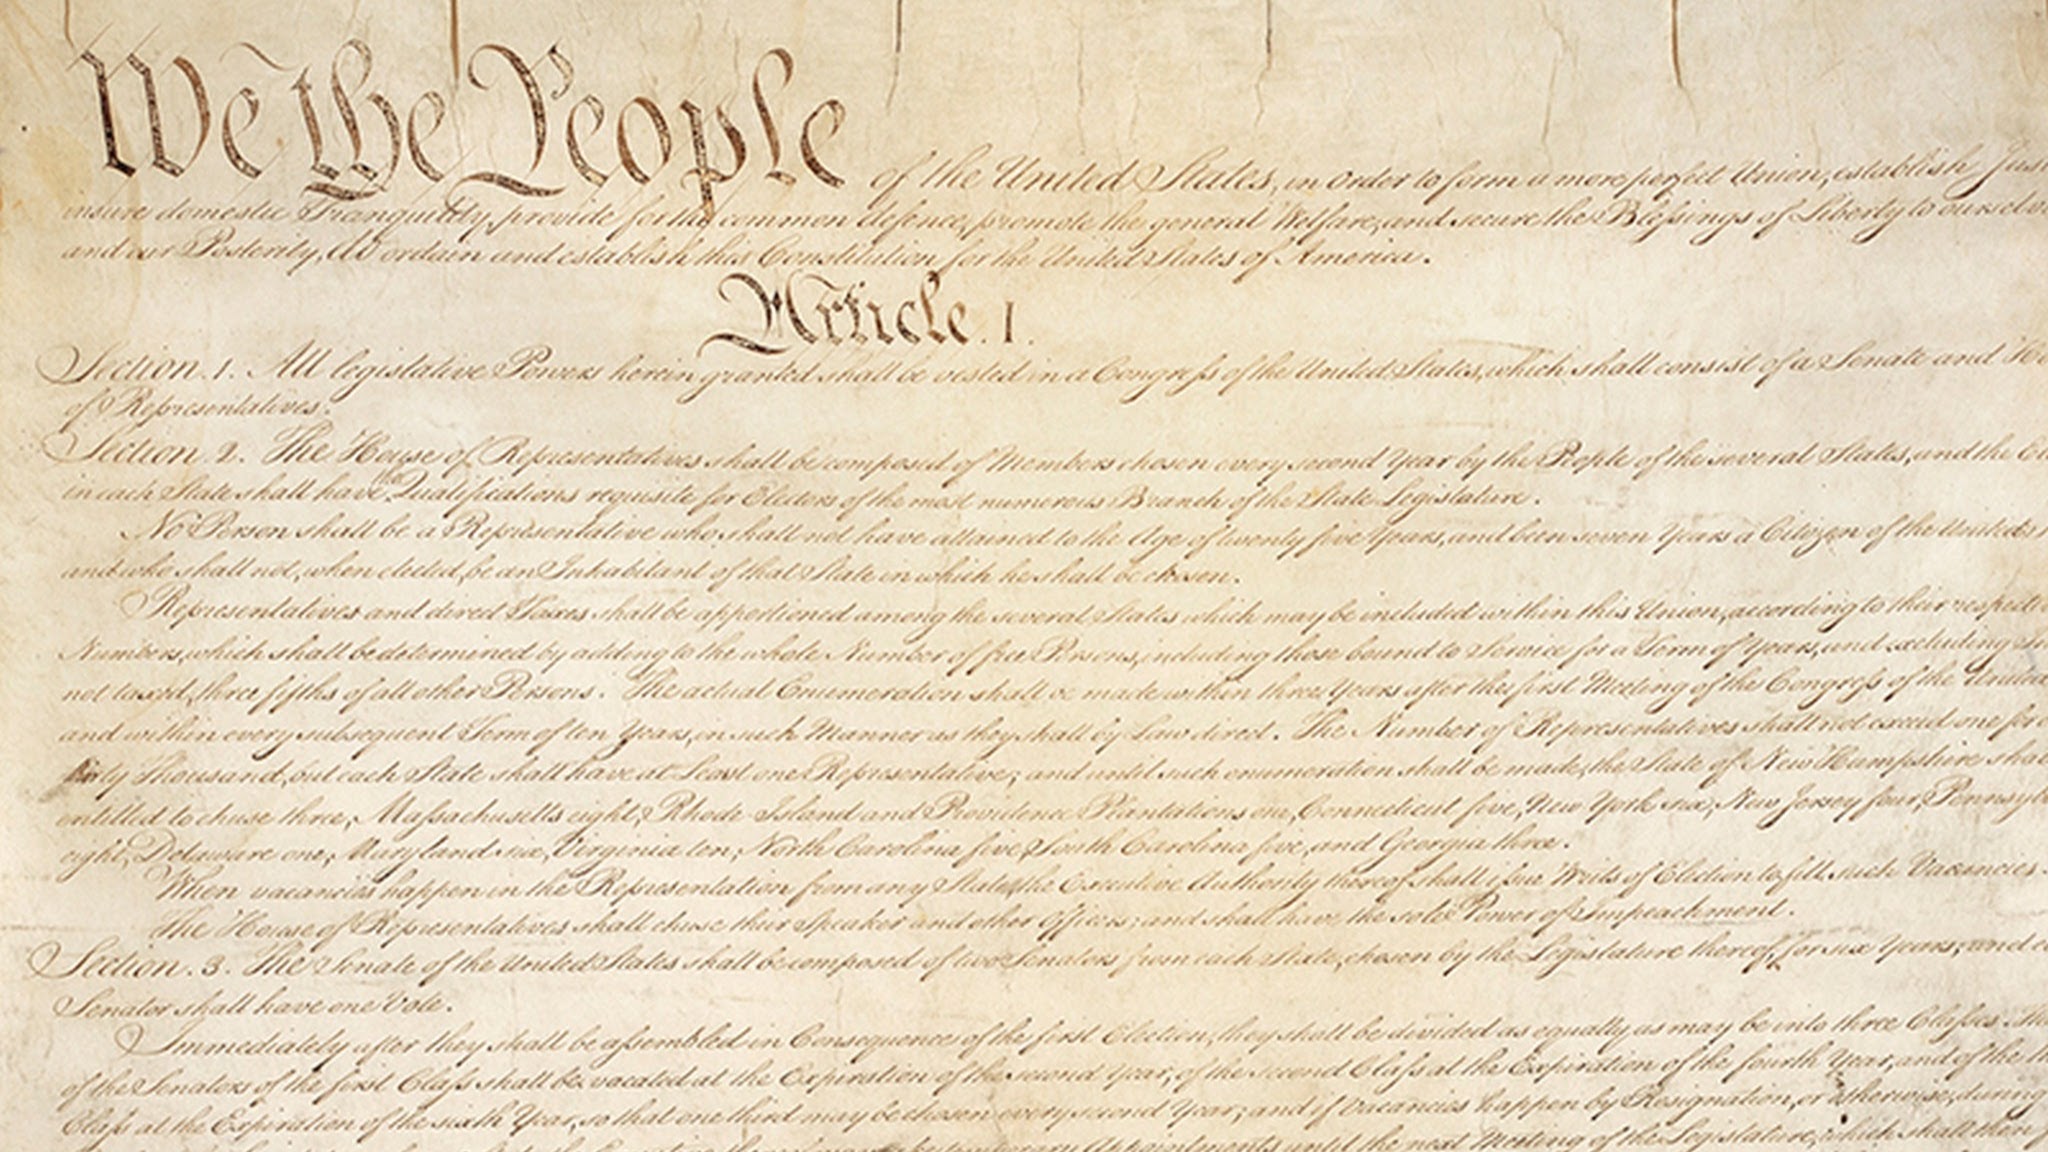 We the People of the United States, in Order to form a more perfect Union, establish Jus
insure domestic Tranquility, provide for the common defence, promote the general Welfare, and secure the Blessings of Liberty to ourselv
and our Posterity, do ordain and establish this Constitution for the United States of America.
Article. I.
Section. 1. All legislative Powers herein granted shall be vested in a Congress of the United States, which shall consist of a Senate and Ho
of Representatives.
Section. 2. The House of Representatives shall be composed of Members chosen every second Year by the People of the several States, and the El
in each State shall have Qualifications requisite for Electors of the most numerous Branch of the State Legislature.
No Person shall be a Representative who shall not have attained to the Age of twenty five Years, and been seven Years a Citizen of the United
and who shall not, when elected, be an Inhabitant of that State in which he shall be chosen.
Representatives and direct Taxes shall be apportioned among the several States which may be included within this Union, according to their respecti
Numbers, which shall be determined by adding to the whole Number of free Persons, including those bound to Service for a Term of Years, and excluding
not taxed, three fifths of all other Persons. The actual Enumeration shall be made within three Years after the first Meeting of the Congress of the United
and within every subsequent Term of ten Years, in such Manner as they shall by Law direct. The Number of Representatives shall not exceed one for
thirty Thousand, but each State shall have at Least one Representative; and until such enumeration shall be made, the State of New Hampshire shal
entitled to chuse three, Massachusetts eight, Rhode-Island and Providence Plantations one, Connecticut five, New York six, New Jersey four, Pennsyl
eight, Delaware one, Maryland six, Virginia ten, North Carolina five, South Carolina five, and Georgia three.
When vacancies happen in the Representation from any State, the Executive Authority thereof shall issue Writs of Election to fill such Vacancies.
The House of Representatives shall chuse their Speaker and other Officers; and shall have the sole Power of Impeachment.
Section. 3. The Senate of the United States shall be composed of two Senators from each State, chosen by the Legislature thereof, for six Years; and
Senator shall have one Vote.
Immediately after they shall be assembled in Consequence of the first Election, they shall be divided as equally as may be into three Classes. The
of the Senators of the first Class shall be vacated at the Expiration of the second Year, of the second Class at the Expiration of the fourth Year, and of the
Class at the Expiration of the sixth Year, so that one third may be chosen every second Year; and if Vacancies happen by Resignation, or otherwise, during
temporary Appointments until the next Meeting of the Legislature, which shall then